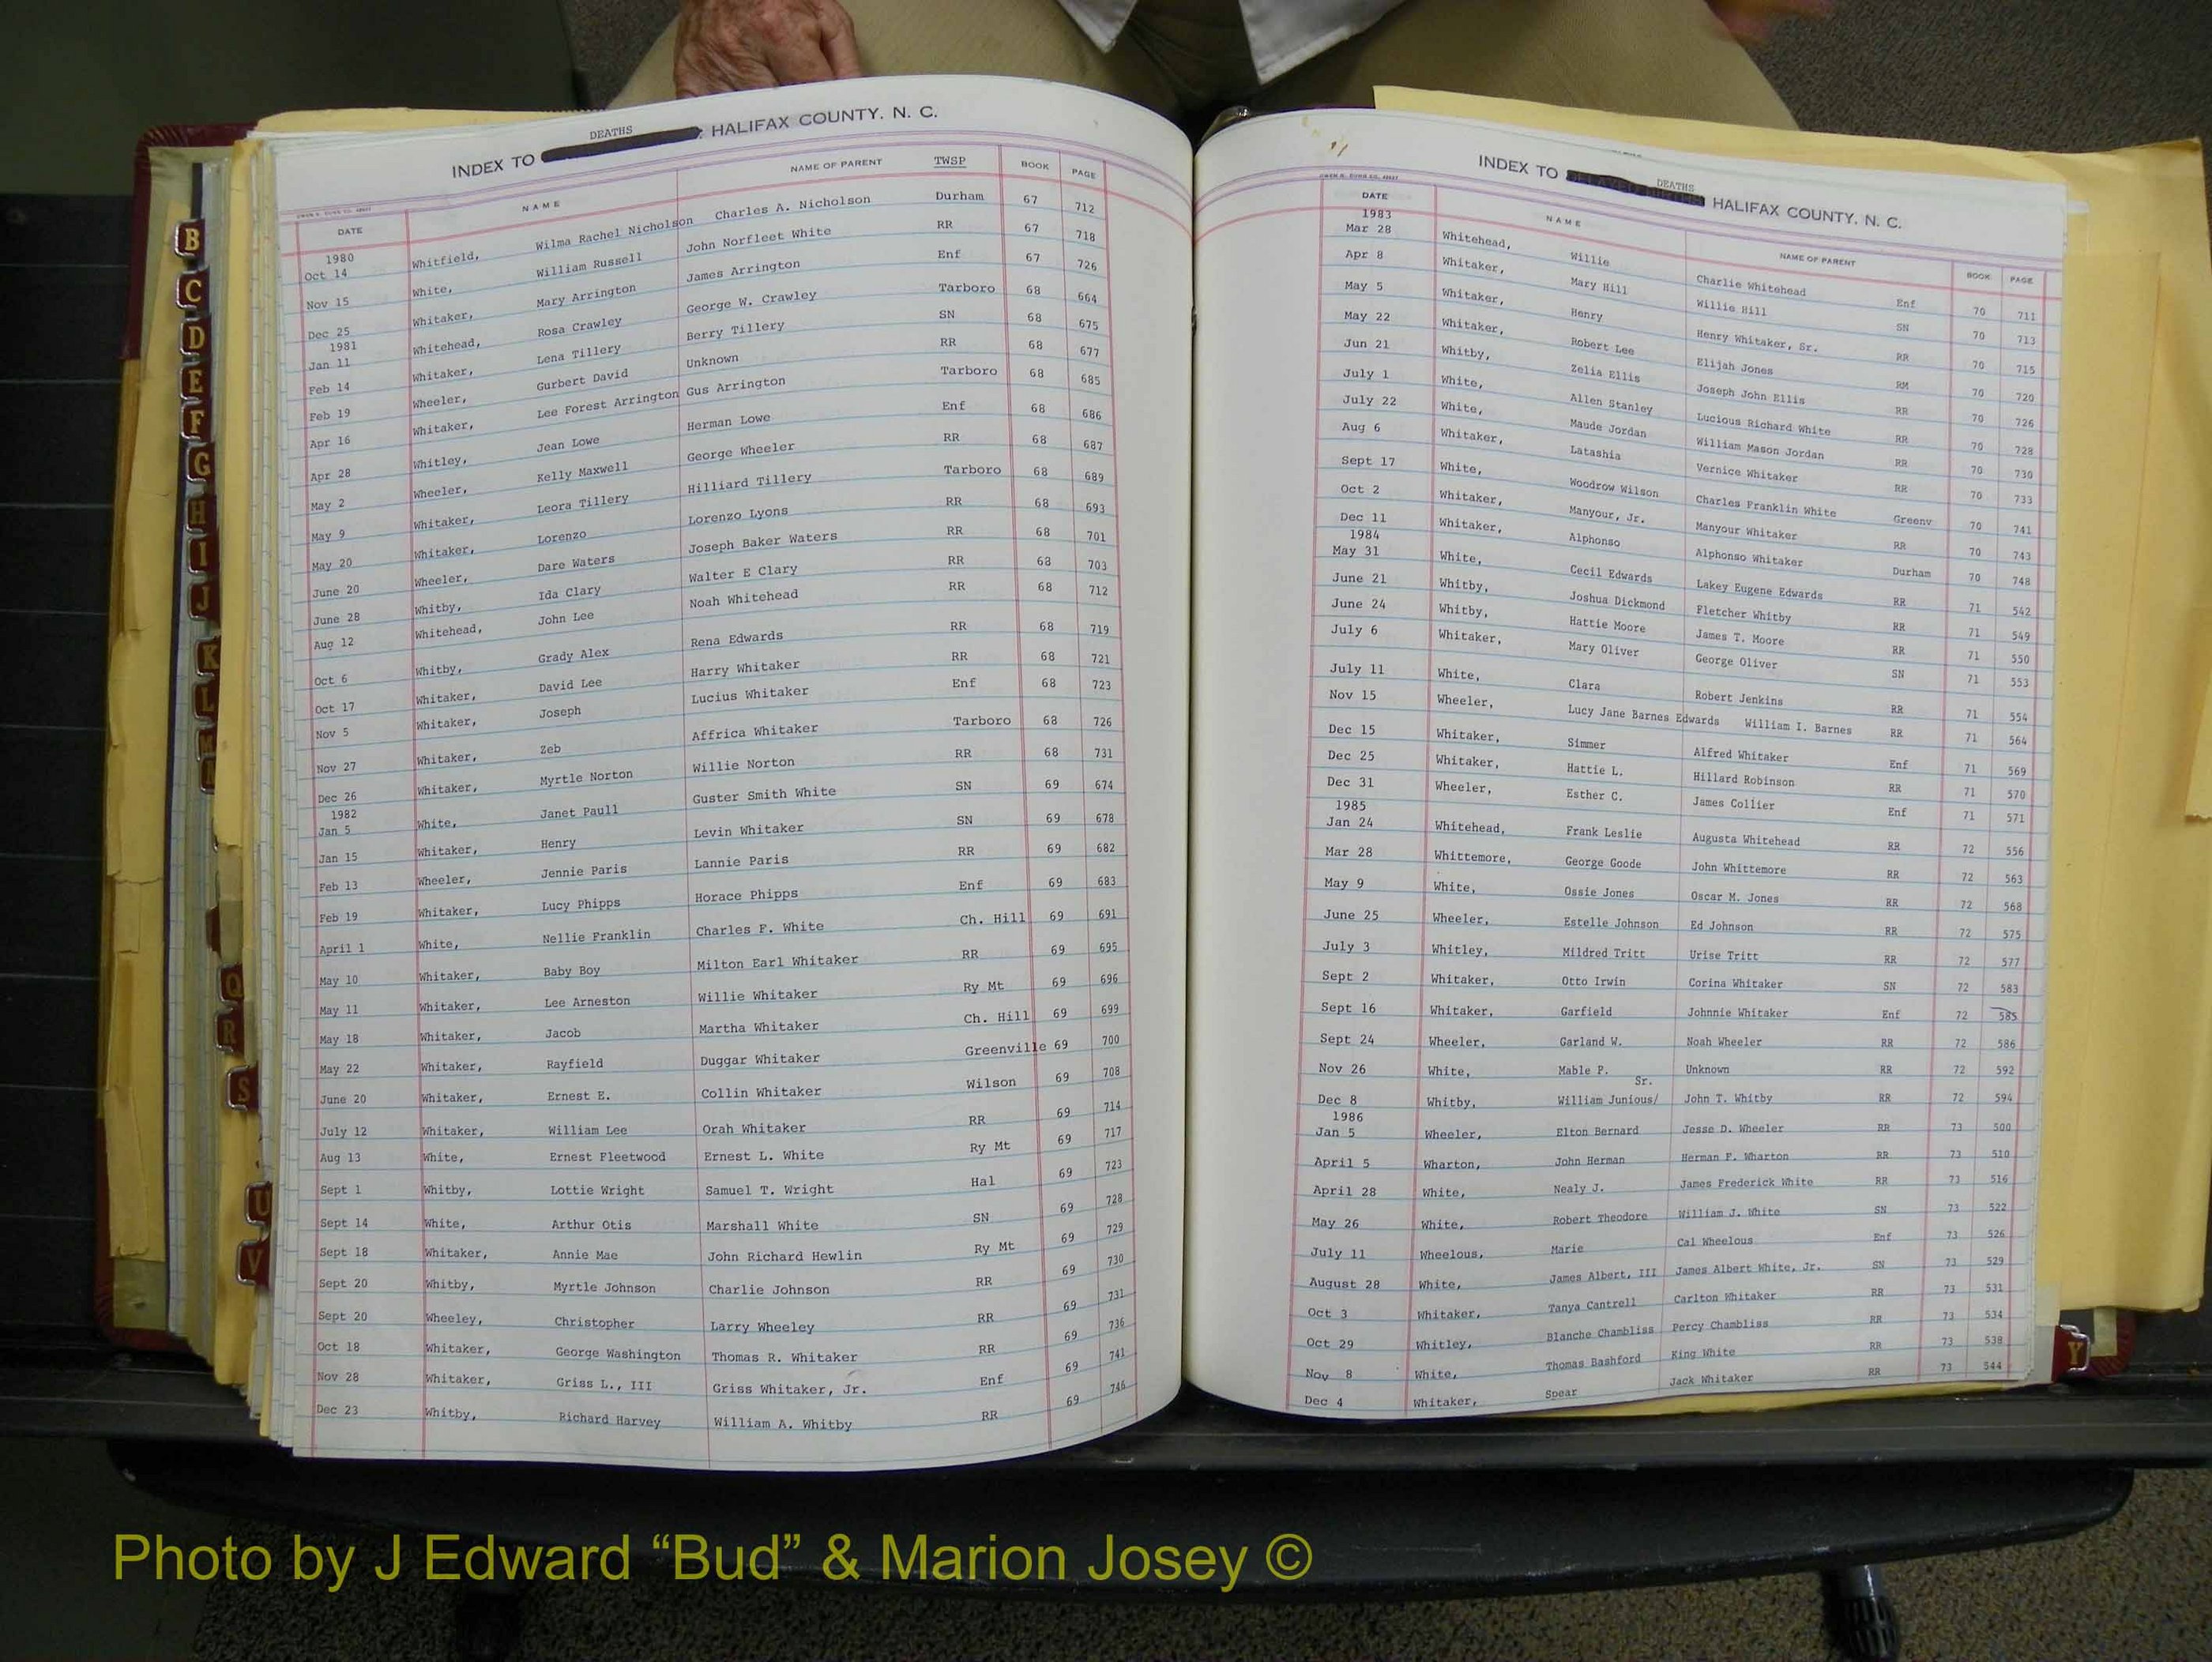 DEATHS
INDEX TO HALIFAX COUNTY, N. C.
DATE NAME NAME OF PARENT TWSP BOOK PAGE
1980
Oct 14 Whitfield, Wilma Rachel Nicholson Charles A. Nicholson Durham 67 712
Nov 15 White, William Russell John Norfleet White RR 67 718
Dec 25 Whitaker, Mary Arrington James Arrington Enf 67 726
1981
Jan 11 Whitehead, Rosa Crawley George W. Crawley Tarboro 68 664
Feb 14 Whitaker, Lena Tillery Berry Tillery SN 68 675
Feb 19 Wheeler, Gurbert David Unknown RR 68 677
Apr 16 Whitaker, Lee Forest Arrington Gus Arrington Tarboro 68 685
Apr 28 Whitley, Jean Lowe Herman Lowe Enf 68 686
May 2 Wheeler, Kelly Maxwell George Wheeler RR 68 687
May 9 Whitaker, Leora Tillery Hilliard Tillery Tarboro 68 689
May 20 Whitaker, Lorenzo Lorenzo Lyons RR 68 693
June 20 Wheeler, Dare Waters Joseph Baker Waters RR 68 701
June 28 Whitby, Ida Clary Walter E Clary RR 68 703
Aug 12 Whitehead, John Lee Noah Whitehead RR 68 712
Oct 6 Whitby, Grady Alex Rena Edwards RR 68 719
Oct 17 Whitaker, David Lee Harry Whitaker RR 68 721
Nov 5 Whitaker, Joseph Lucius Whitaker Enf 68 723
Nov 27 Whitaker, Zeb Affrica Whitaker Tarboro 68 726
Dec 26 Whitaker, Myrtle Norton Willie Norton RR 68 731
1982
Jan 5 White, Janet Paull Guster Smith White SN 69 674
Jan 15 Whitaker, Henry Levin Whitaker SN 69 678
Feb 13 Wheeler, Jennie Paris Lannie Paris RR 69 682
Feb 19 Whitaker, Lucy Phipps Horace Phipps Enf 69 683
April 1 White, Nellie Franklin Charles F. White Ch. Hill 69 691
May 10 Whitaker, Baby Boy Milton Earl Whitaker RR 69 695
May 11 Whitaker, Lee Arneston Willie Whitaker Ry Mt 69 696
May 18 Whitaker, Jacob Martha Whitaker Ch. Hill 69 699
May 22 Whitaker, Rayfield Duggar Whitaker Greenville 69 700
June 20 Whitaker, Ernest E. Collin Whitaker Wilson 69 708
July 12 Whitaker, William Lee Orah Whitaker RR 69 714
Aug 13 White, Ernest Fleetwood Ernest L. White Ry Mt 69 717
Sept 1 Whitby, Lottie Wright Samuel T. Wright Hal 69 723
Sept 14 White, Arthur Otis Marshall White SN 69 728
Sept 18 Whitaker, Annie Mae John Richard Hewlin Ry Mt 69 729
Sept 20 Whitby, Myrtle Johnson Charlie Johnson RR 69 730
Sept 20 Wheeley, Christopher Larry Wheeley RR 69 731
Oct 18 Whitaker, George Washington Thomas R. Whitaker RR 69 736
Nov 28 Whitaker, Griss L., III Griss Whitaker, Jr. Enf 69 741
Dec 23 Whitby, Richard Harvey William A. Whitby RR 69 746
DEATHS
INDEX TO HALIFAX COUNTY, N. C.
DATE NAME NAME OF PARENT BOOK PAGE
1983
Mar 28 Whitehead, Willie Charlie Whitehead Enf 70 711
Apr 8 Whitaker, Mary Hill Willie Hill SN 70 713
May 5 Whitaker, Henry Henry Whitaker, Sr. RR 70 715
May 22 Whitaker, Robert Lee Elijah Jones RM 70 720
Jun 21 Whitby, Zelia Ellis Joseph John Ellis RR 70 726
July 1 White, Allen Stanley Lucious Richard White RR 70 728
July 22 White, Maude Jordan William Mason Jordan RR 70 730
Aug 6 Whitaker, Latashia Vernice Whitaker RR 70 733
Sept 17 White, Woodrow Wilson Charles Franklin White Greenv 70 741
Oct 2 Whitaker, Manyour, Jr. Manyour Whitaker RR 70 743
Dec 11 Whitaker, Alphonso Alphonso Whitaker Durham 70 748
1984
May 31 White, Cecil Edwards Lakey Eugene Edwards RR 71 542
June 21 Whitby, Joshua Dickmond Fletcher Whitby RR 71 549
June 24 Whitby, Hattie Moore James T. Moore RR 71 550
July 6 Whitaker, Mary Oliver George Oliver SN 71 553
July 11 White, Clara Robert Jenkins RR 71 554
Nov 15 Wheeler, Lucy Jane Barnes Edwards William I. Barnes RR 71 564
Dec 15 Whitaker, Simmer Alfred Whitaker Enf 71 569
Dec 25 Whitaker, Hattie L. Hillard Robinson RR 71 570
Dec 31 Wheeler, Esther C. James Collier Enf 71 571
1985
Jan 24 Whitehead, Frank Leslie Augusta Whitehead RR 72 556
Mar 28 Whittemore, George Goode John Whittemore RR 72 563
May 9 White, Ossie Jones Oscar M. Jones RR 72 568
June 25 Wheeler, Estelle Johnson Ed Johnson RR 72 575
July 3 Whitley, Mildred Tritt Urise Tritt RR 72 577
Sept 2 Whitaker, Otto Irwin Corina Whitaker SN 72 583
Sept 16 Whitaker, Garfield Johnnie Whitaker Enf 72 585
Sept 24 Wheeler, Garland W. Noah Wheeler RR 72 586
Nov 26 White, Mable P. Unknown RR 72 592
Sr.
Dec 8 Whitby, William Junious/ John T. Whitby RR 72 594
1986
Jan 5 Wheeler, Elton Bernard Jesse D. Wheeler RR 73 500
April 5 Wharton, John Herman Herman F. Wharton RR 73 510
April 28 White, Nealy J. James Frederick White RR 73 516
May 26 White, Robert Theodore William J. White SN 73 522
July 11 Wheelous, Marie Cal Wheelous Enf 73 526
August 28 White, James Albert, III James Albert White, Jr. SN 73 529
Oct 3 Whitaker, Tanya Cantrell Carlton Whitaker RR 73 531
Oct 29 Whitley, Blanche Chambliss Percy Chambliss RR 73 534
Nov 8 White, Thomas Bashford King White RR 73 538
Dec 4 Whitaker, Spear Jack Whitaker RR 73 544
B
C
D
E
F
G
H
I
J
K
L
M
N
Q
R
S
U
V
Y
Photo by J Edward “Bud” & Marion Josey ©